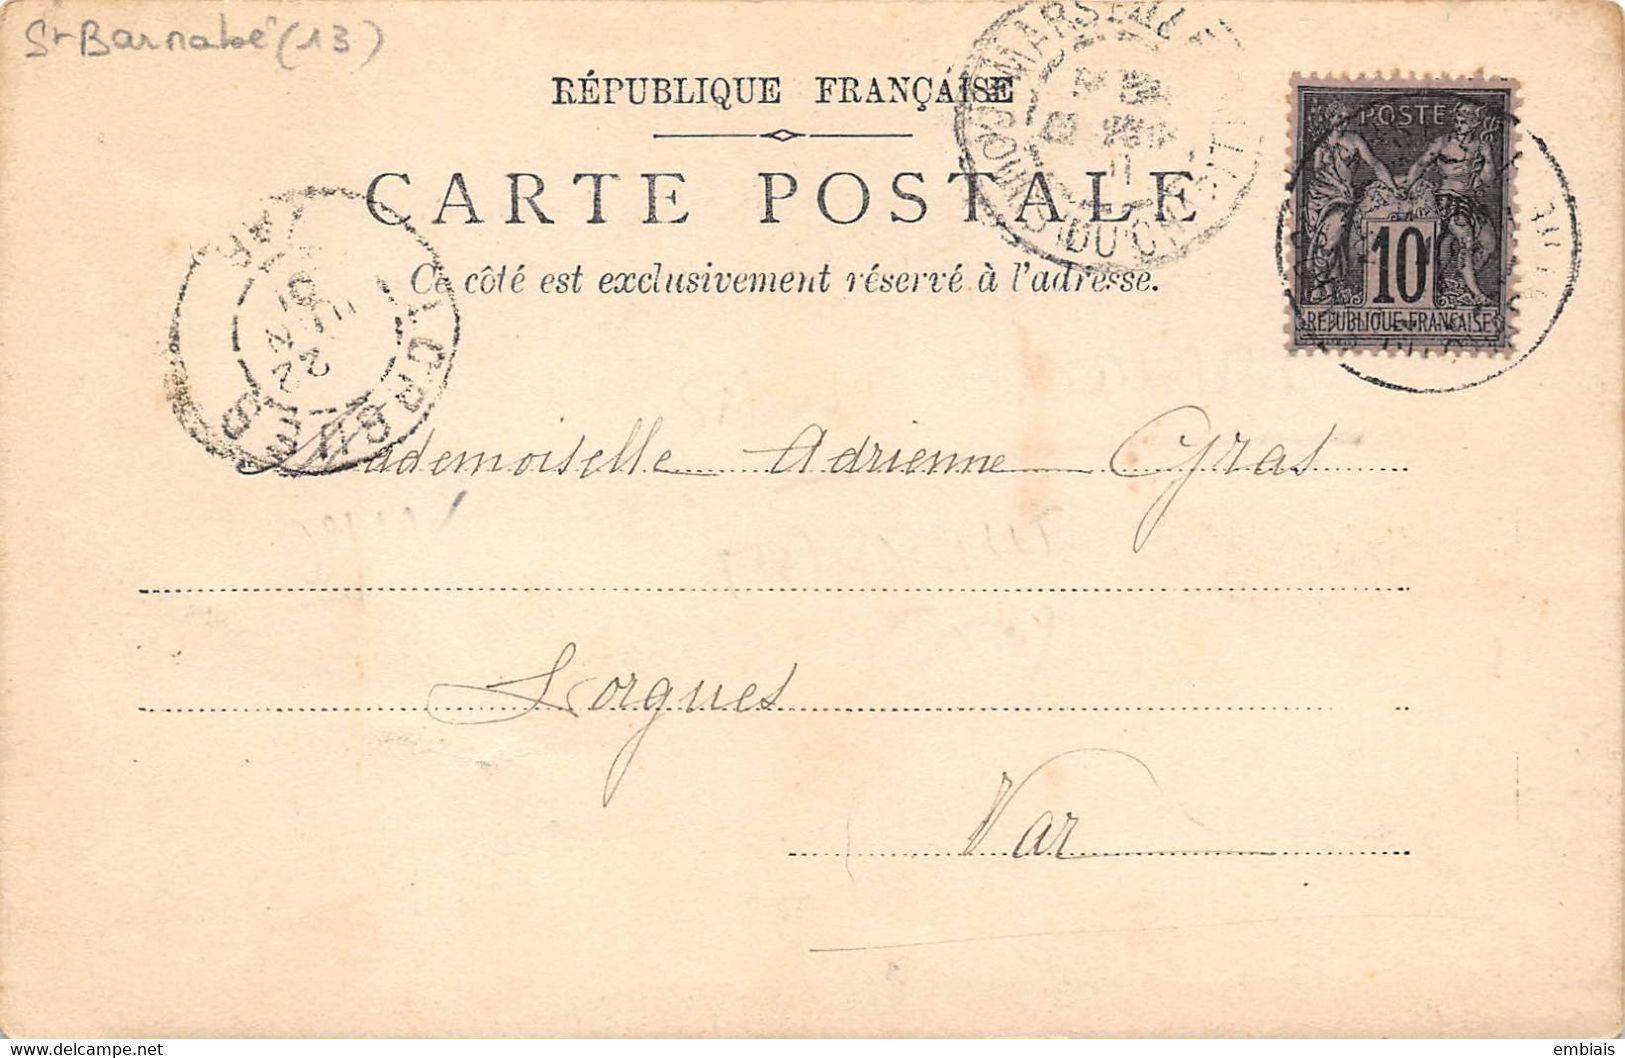 St Barnabé (13)
RÉPUBLIQUE FRANÇAISE
MARSEILLE
COURS DU CHAPITRE
POSTE
10
REPUBLIQUE FRANÇAISE
CARTE POSTALE
Ce côté est exclusivement réservé à l'adresse.
LORGUES
VAR
22
01
Mademoiselle Adrienne Gras
Lorgues
Var
embiais